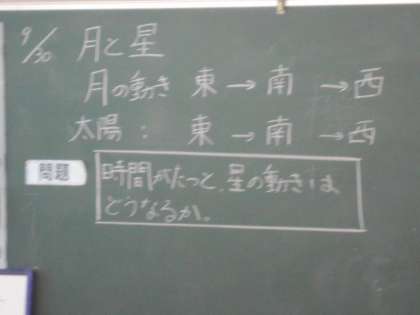 9/30 月と星
月の動き 東→南→西
太陽: 東→南→西
問題 時間がたつと、星の動きは、
どうなるか。